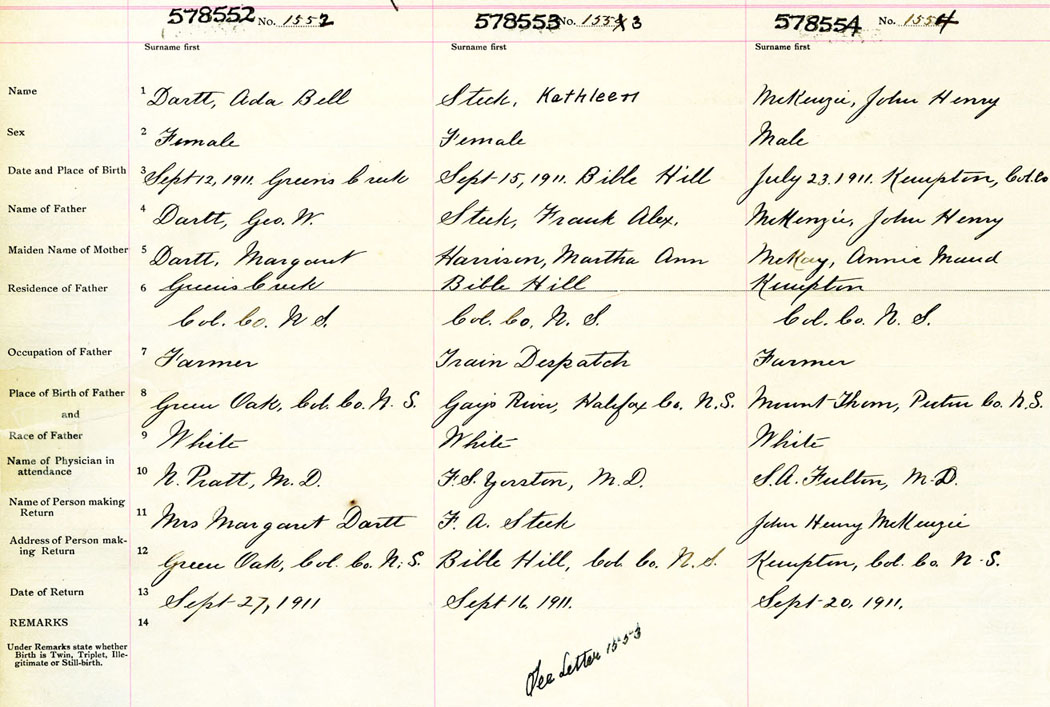 578552 No. 1552 578553 No. 1553 3 578554 No. 1554
Surname first Surname first Surname first
Name 1 Dartt, Ada Bell Steck, Kathleen McKenzie, John Henry
Sex 2 Female Female Male
Date and Place of Birth 3 Sept 12, 1911. Greens Creek Sept 15, 1911. Bible Hill July 23. 1911. Kempton, Col. Co
Name of Father 4 Dartt, Geo. W. Steck, Frank Alex. McKenzie, John Henry
Maiden Name of Mother 5 Dartt, Margaret Harrison, Martha Ann McKay, Annie Maud
Residence of Father 6 Greens Creek Bible Hill Kempton
Col. Co. N S. Col. Co. N. S. Col. Co. N. S.
Occupation of Father 7 Farmer Train Despatch Farmer
Place of Birth of Father 8 Green Oak, Col. Co. N. S. Gays River, Halifax Co. N.S. Mount Thom, Pictou Co. N.S.
and
Race of Father 9 White White White
Name of Physician in
attendance 10 N. Pratt, M.D. F.S. Yorston, M.D. S.A. Fulton, M.D.
Name of Person making
Return 11 Mrs Margaret Dartt F. A. Steck John Henry McKenzie
Address of Person mak-
ing Return 12 Green Oak, Col. Co. N. S. Bible Hill, Col. Co. N. S. Kempton, Col. Co. N. S.
Date of Return 13 Sept 27, 1911 Sept 16, 1911. Sept 20, 1911.
REMARKS 14
Under Remarks state whether
Birth is Twin, Triplet, Ille-
gitimate or Still-birth.
See Letter 1553